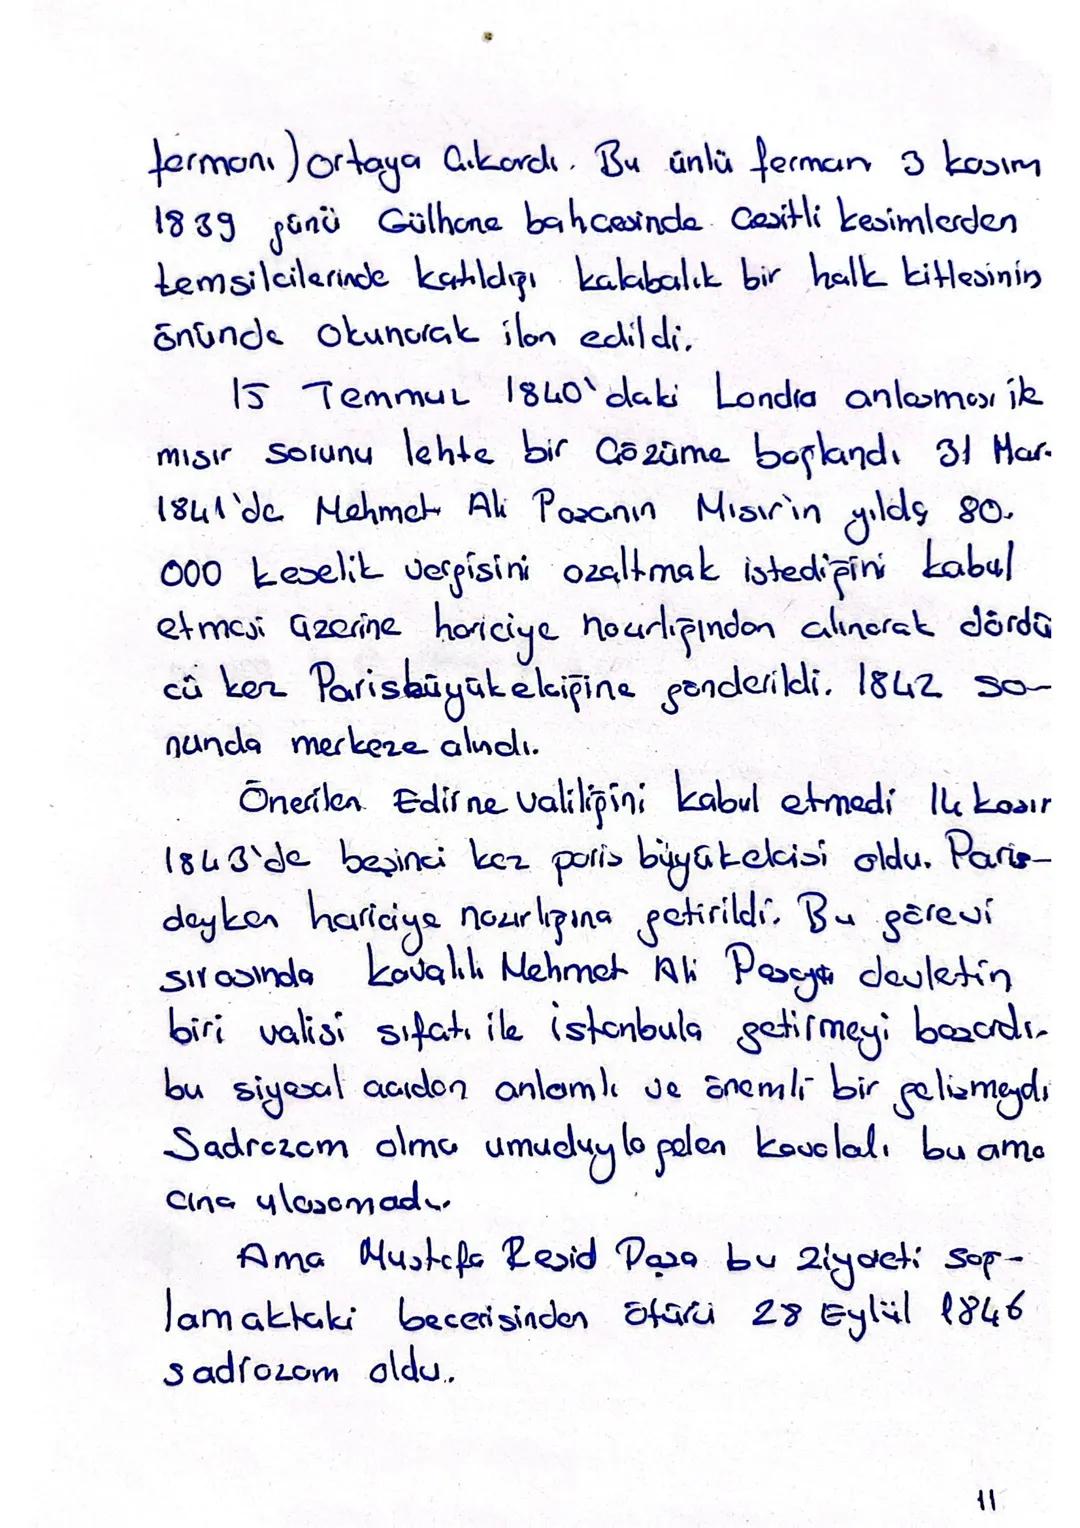 fermanı) ortaya Çıkardı. Bu ünlü ferman 3 kasım
1839 günü Gülhane bahcesinde Cesitli kesimlerden
temsilcilerinde katıldığı kalabalık bir halk kitlesinin
önünde okunarak ilan edildi.
15 Temmuz 1840'daki Londra anlasması ik
mısır sorunu lehte bir Cözüme bağlandı 31 Mar.
1841'de Mehmet Ali Pasanın Mısır'in yılda 80.
000 keselik vergisini azaltmak istediğini kabul
etmesi üzerine hariciye nazırlığından alınarak dördü
cü kez Parisbüyükelciğine gönderildi. 1842 so-
nunda merkeze alındı.
Önerilen Edirne valiliğini kabul etmedi 14 kasır
1843'de beşinci kez paris büyükelcisi oldu. Paris-
deyken hariciye nazırlığına getirildi. Bu görevi
sırasında kavalılı Mehmet Ali Paşayı devletin
biri valisi sıfatı ile istanbula getirmeyi basardı.
bu siyasal acıdan anlamlı ve önemli bir gelismeydi
Sadrazam olma umuduyla gelen kavalalı bu ama
cına ulasamadı.
Ama Mustafa Resid Pasa bu ziyareti sağ-
lamaktaki becerisinden ötürü 28 Eylül 1846
sadrazam oldu..
11